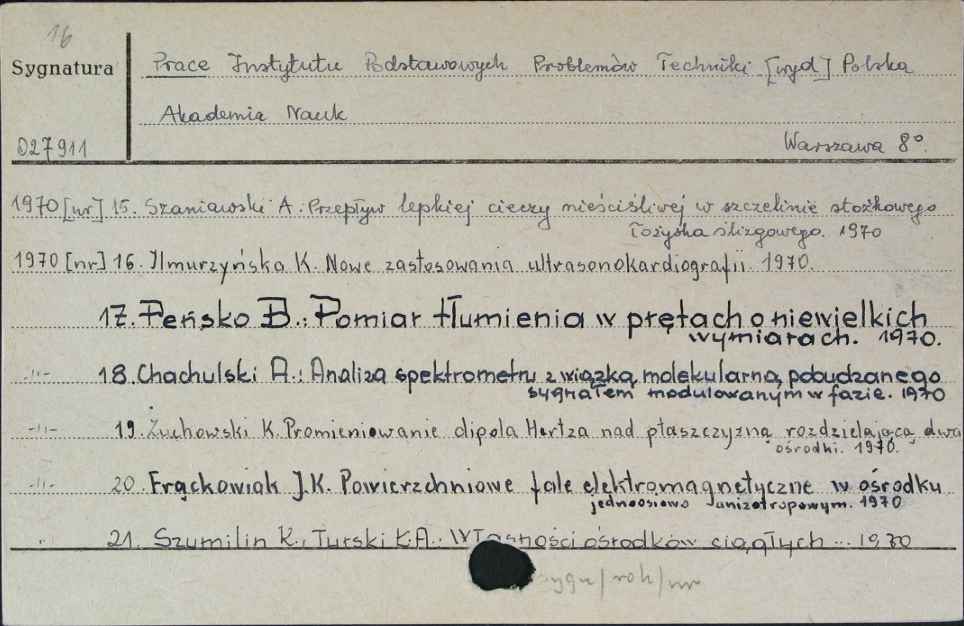 16
Sygnatura
Prace Instytutu Podstawowych Problemów Techniki [wyd] Polska
Akademia Nauk
D27911
Warszawa 8°.
1970 [nr] 15. Szaniawski A.: Przepływ lepkiej cieczy nieściśliwej w szczelinie stożkowego
łożyska ślizgowego. 1970
1970 [nr] 16. Ilmurzyńska K. Nowe zastosowania ultrasonokardiografii. 1970.
17. Peńsko B.: Pomiar tłumienia w prętach o niewielkich
wymiarach. 1970.
-"- 18. Chachulski A.: Analiza spektrometru z wiązką molekularną pobudzanego
sygnałem modulowanym w fazie. 1970
-"- 19. Żuchowski K. Promieniowanie dipola Hertza nad płaszczyzną rozdzielającą dwa
ośrodki. 1970.
-"- 20. Frąckowiak J.K. Powierzchniowe fale elektromagnetyczne w ośrodku
jednoosiowo anizotropowym. 1970
" 21. Szumilin K., Turski Ł.A.: Własności ośrodków ciągłych ... 1970
sygn/rok/nr